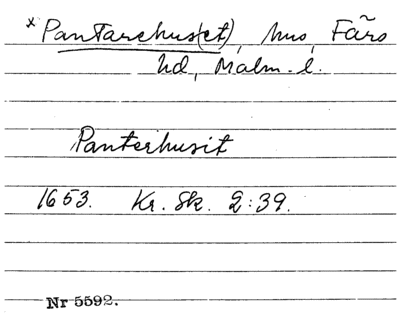 x Pantarehus(et), hus, Färs
hd, Malm. l.
Panterhusit
1653. Kr. Sk. 2:39.
Nr 5592.